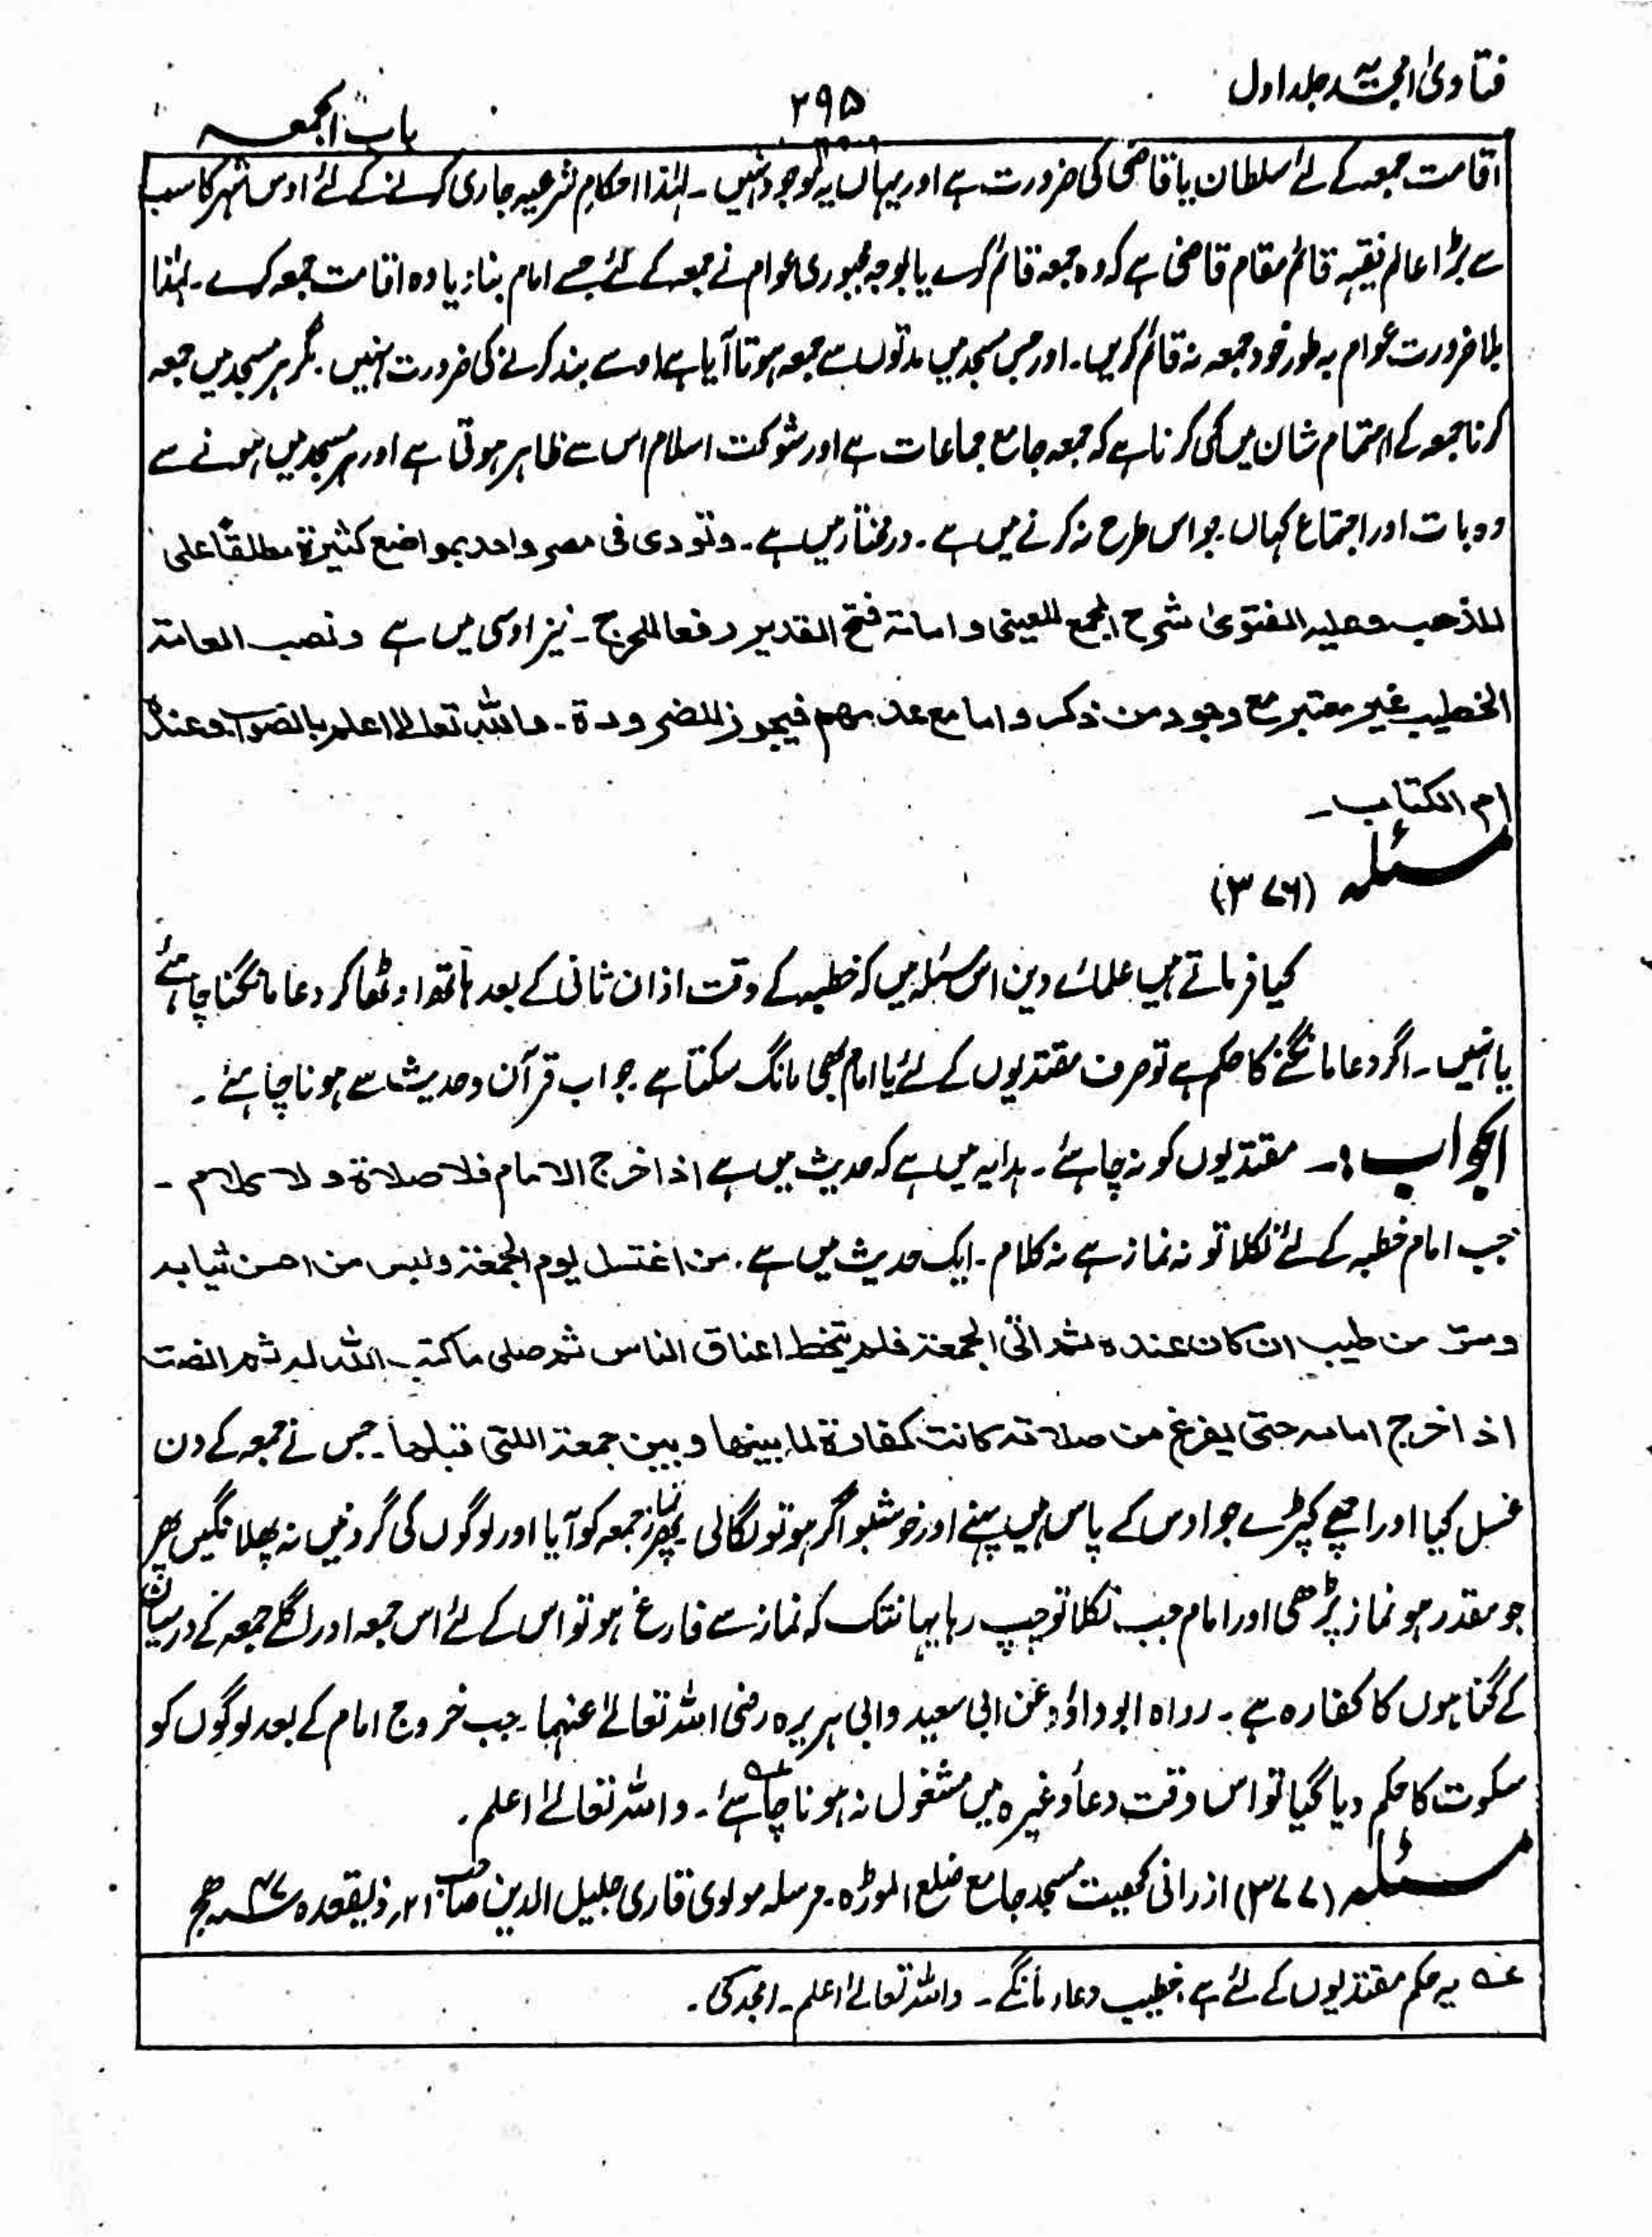 فتاویٰ امجدیہ جلد اول
۲۹۵
باب الجمعہ
اقامت جمعہ کے لئے سلطان یا قاضی کی ضرورت ہے اور یہاں یہ موجود نہیں۔ لہٰذا احکام شرعیہ جاری کرنے کے لئے اوس شہر کا سب
سے بڑا عالم فقیہ قائم مقام قاضی ہے کہ وہ جمعہ قائم کرے یا بوجہ مجبوری عوام نے جمعہ کے لئے جسے امام بنا دیا وہ اقامت جمعہ کرے۔ لہٰذا
بلا ضرورت عوام بہ طور خود جمعہ نہ قائم کریں۔ اور جس مسجد میں مدتوں سے جمعہ ہوتا آیا ہے اوسے بند کرنے کی ضرورت نہیں۔ مگر ہر مسجد میں جمعہ
کرنا جمعہ کے اہتمام شان میں کمی کرنا ہے کہ جمعہ جامع جماعات ہے اور شوکت اسلام اس سے ظاہر ہوتی ہے اور ہر مسجد میں ہونے سے
وہ بات اور اجتماع کہاں جو اس طرح نہ کرنے میں ہے۔ درمختار میں ہے۔ وتؤدی فی مصر واحد بمواضع کثیرۃ مطلقًا علی
المذھب وعلیہ الفتویٰ شرح المجمع للعینی وامامۃ فتح القدیر دفعا للحرج۔ نیز اوسی میں ہے ونصب العامۃ
الخطیب غیر معتبر مع وجود من ذکر واما مع عدمھم فیجوز للضرورۃ۔ واللہ تعالیٰ اعلم بالصواب وعندہ
ام الکتاب۔
مسئلہ (۳۷۶)
کیا فرماتے ہیں علمائے دین اس مسئلہ میں کہ خطبہ کے وقت اذان ثانی کے بعد ہاتھ اوٹھا کر دعا مانگنا چاہئے
یا نہیں۔ اگر دعا مانگنے کا حکم ہے تو صرف مقتدیوں کے لئے یا امام بھی مانگ سکتا ہے جواب قرآن وحدیث سے ہونا چاہئے۔
الجواب:۔ مقتدیوں کو نہ چاہئے۔ ہدایہ میں ہے کہ حدیث میں ہے اذا خرج الامام فلا صلاۃ ولا کلام۔
جب امام خطبہ کے لئے نکلا تو نہ نماز ہے نہ کلام۔ ایک حدیث میں ہے۔ من اغتسل یوم الجمعۃ ولبس من احسن ثیابہ
ومس من طیب ان کان عندہ ثم اتی الجمعۃ فلم یتخط اعناق الناس ثم صلی ما کتب اللہ لہ ثم انصت
اذا خرج امامہ حتی یفرغ من صلاتہ کانت کفارۃ لما بینھا وبین جمعۃ اللتی قبلھا۔ جس نے جمعہ کے دن
غسل کیا اور اچھے کپڑے جو اوس کے پاس ہیں پہنے اور خوشبو اگر ہو تو لگالی پھر نماز جمعہ کو آیا اور لوگوں کی گردنیں نہ پھلانگیں پھر
جو مقدر ہو نماز پڑھی اور امام جب نکلا تو چپ رہا یہانتک کہ نماز سے فارغ ہو تو اس کے لئے اس جمعہ اور اگلے جمعہ کے درمیان
کے گناہوں کا کفارہ ہے۔ رواہ ابوداؤد عن ابی سعید وابی ہریرہ رضی اللہ تعالےٰ عنہما۔ جب خروج امام کے بعد لوگوں کو
سکوت کا حکم دیا گیا تو اس وقت دعا وغیرہ میں مشغول نہ ہونا چاہئے عہ۔ واللہ تعالےٰ اعلم۔
مسئلہ (۳۷۷) از رانی کھیت مسجد جامع ضلع الموڑہ۔ مرسلہ مولوی قاری جلیل الدین صاحب ۲۱؍ ذیقعدہ ۴۷ ھج
عہ یہ حکم مقتدیوں کے لئے ہے خطیب دعا مانگے۔ واللہ تعالےٰ اعلم۔ امجدی۔